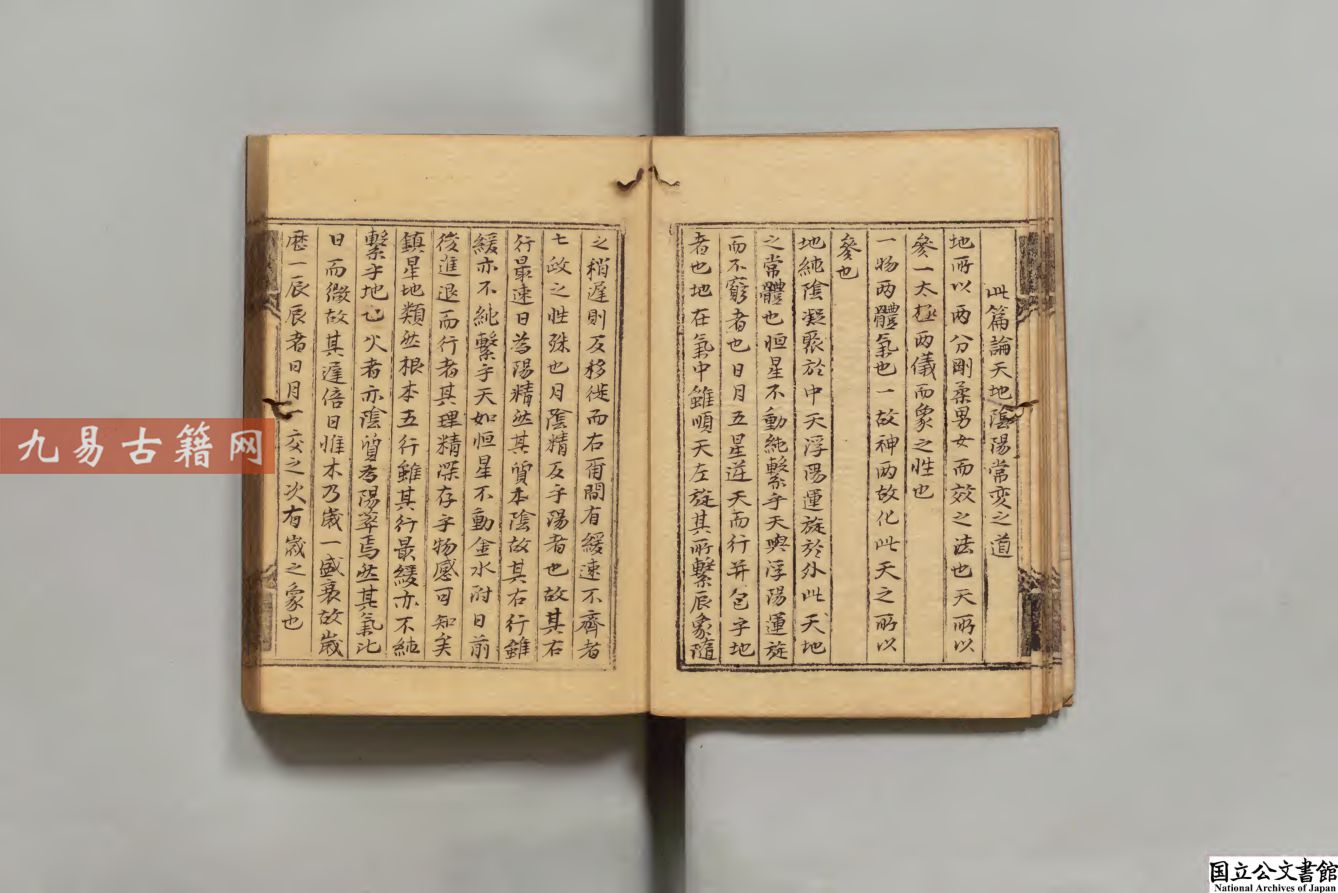 此篇論天地陰陽常変之道
地所以两分剛柔男女而效之法也天所以
參一太極两儀而象之性也
一物两體氣也一故神两故化此天之所以
參也
地純陰凝聚於中天浮陽運旋於外此天地
之常體也恒星不動純繫乎天與浮陽運旋
而不窮者也日月五星逆天而行并包乎地
者也地在氣中雖順天左旋其所繫辰象隨
之稍遲則反移徙而右爾間有緩速不齊者
七政之性殊也月陰精反乎陽者也故其右
行最速日為陽精然其質本陰故其右行雖
緩亦不純繫乎天如恒星不動金水附日前
後進退而行者其理精深存乎物感可知矣
鎮星地類然根本五行雖其行最緩亦不純
繫乎地也火者亦陰質為陽萃焉然其氣比
日而微故其遲倍日惟木乃歲一盛衰故歲
歷一辰辰者日月一交之次有歲之象也
九易古籍网
国立公文書館
National Archives of Japan